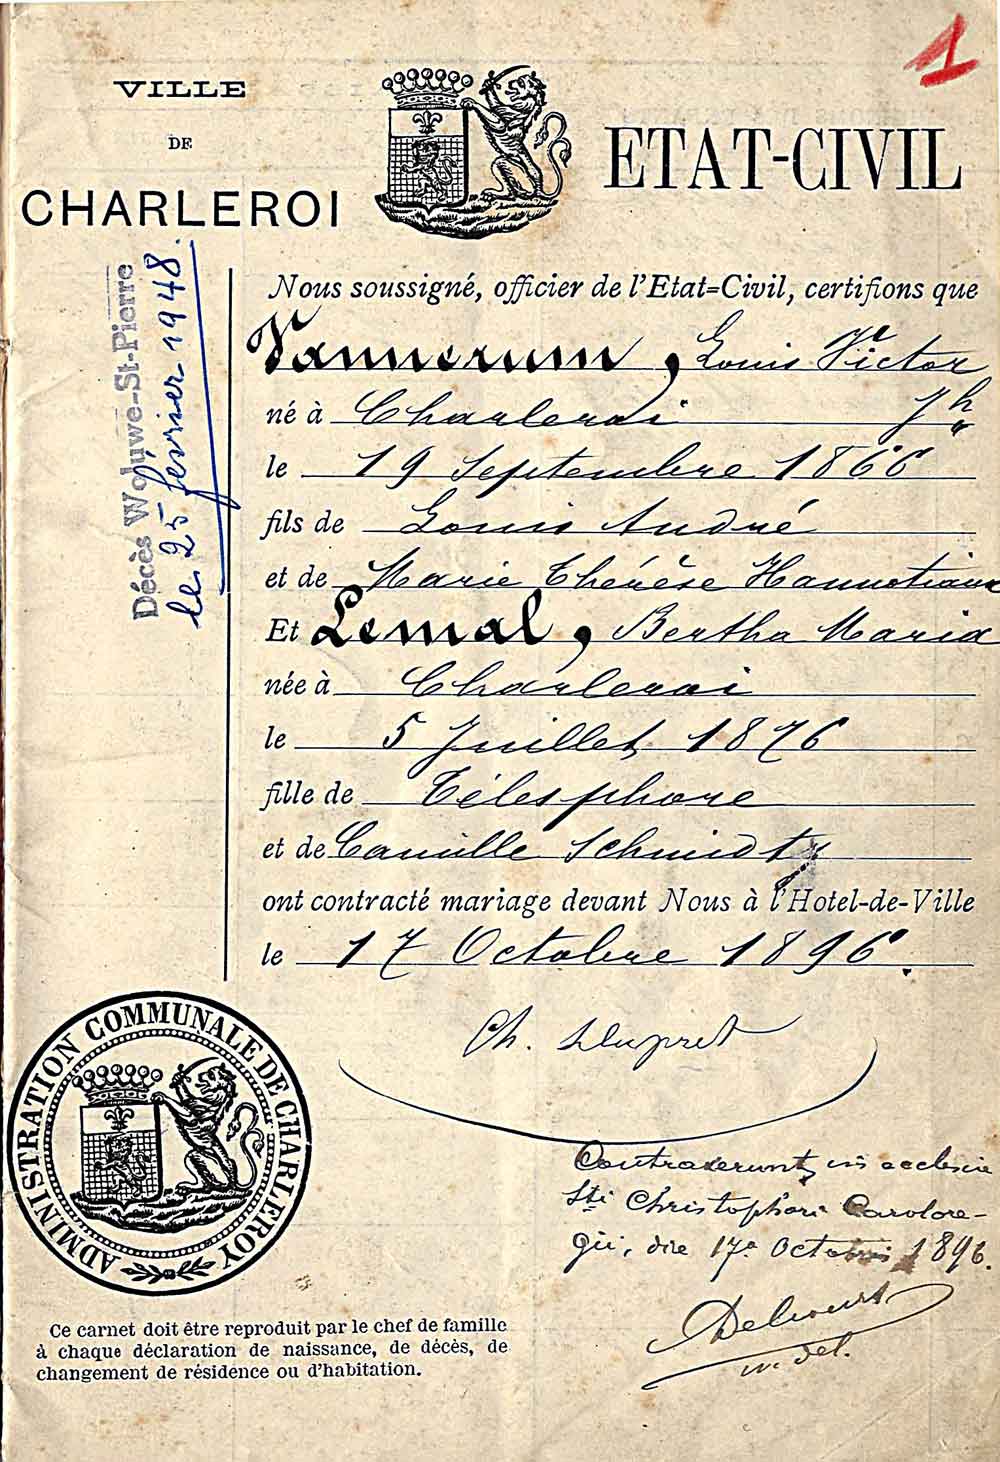 1
VILLE
DE
CHARLEROI
ETAT-CIVIL
Décès Woluwe-St-Pierre
le 25 février 1948.
Nous soussigné, officier de l'Etat=Civil, certifions que
Vannerum, Louis Victor
né à Charleroi Jh
le 19 Septembre 1866
fils de Louis André
et de Marie Thérèse Hannotiaux
Et Lemal, Bertha Maria
née à Charleroi
le 5 Juillet 1876
fille de Télesphore
et de Camille Schmidt
ont contracté mariage devant Nous à l'Hotel-de-Ville
le 17 Octobre 1896.
Ch. Dupret
ADMINISTRATION COMMUNALE DE CHARLEROY
Contraxerunt in ecclesia
Sti Christophori Carolore-
gii, die 17a Octobris 1896.
Delcourt
v. del.
Ce carnet doit être reproduit par le chef de famille
à chaque déclaration de naissance, de décès, de
changement de résidence ou d'habitation.